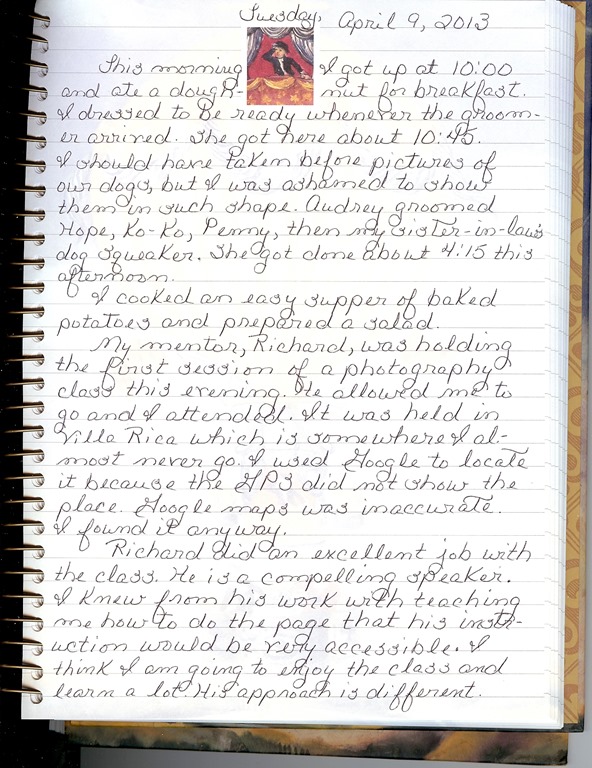 Tuesday, April 9, 2013
This morning I got up at 10:00
and ate a dough- nut for breakfast.
I dressed to be ready whenever the groom-
er arrived. She got here about 10:45.
I should have taken before pictures of
our dogs, but I was ashamed to show
them in such shape. Audrey groomed
Hope, Ko-Ko, Penny, then my sister-in-law's
dog Squeaker. She got done about 4:15 this
afternoon.
I cooked an easy supper of baked
potatoes and prepared a salad.
My mentor, Richard, was holding
the first session of a photography
class this evening. He allowed me to
go and I attended. It was held in
Villa Rica which is somewhere I al-
most never go. I used Google to locate
it because the GPS did not show the
place. Google maps was inaccurate.
I found it anyway.
Richard did an excellent job with
the class. He is a compelling speaker.
I knew from his work with teaching
me how to do the page that his instr-
uction would be very accessible. I
think I am going to enjoy the class and
learn a lot. His approach is different.